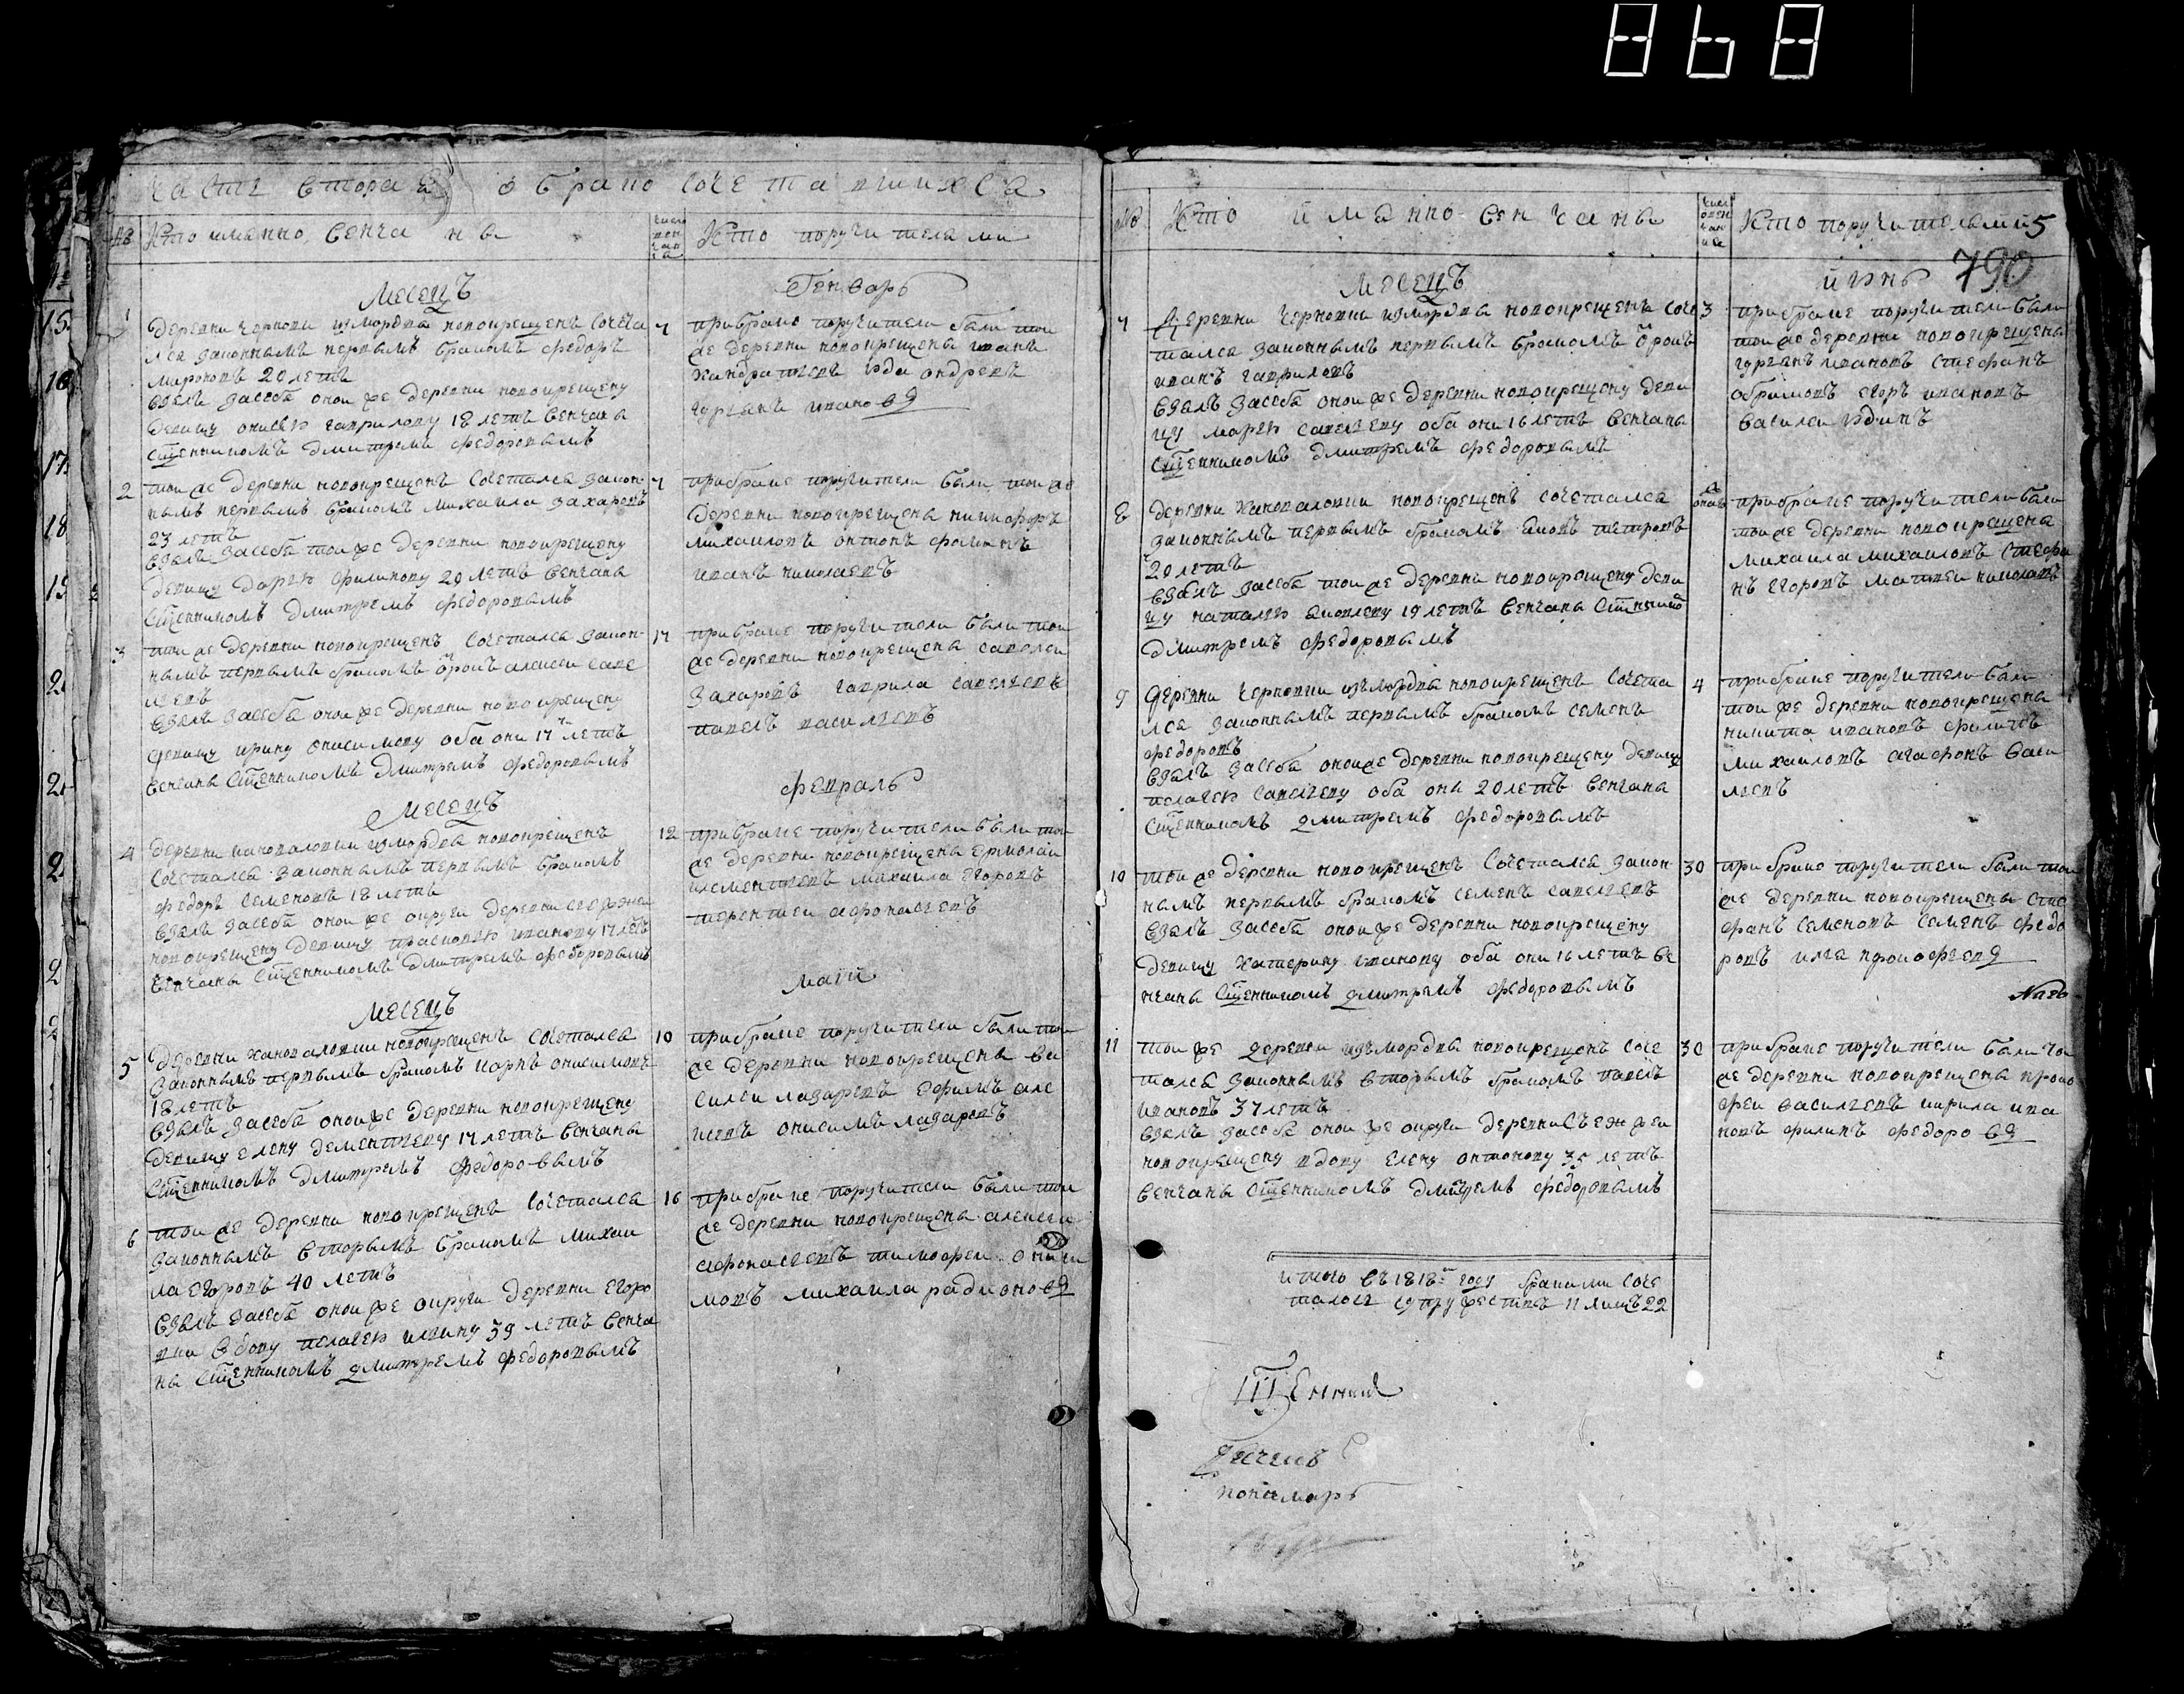 868
часть вторая о брако сочетавшихся
№ Кто именно венчаны
Кто поручителями
Месецъ Генварь
1 деревни Черновки измордвы новокрещенъ сочета
лся законнымъ первымъ бракомъ Федоръ
Мироновъ 20 летъ
взялъ засебя оной же деревни новокрещену
девицу Гаврилову 18 летъ венчаны
сщенникомъ Дмитремъ Федоровымъ
7 прибраке поручители были той
же деревни новокрещены иванъ
Кандратьевъ андреевъ
ивановъ
2 той же деревни новокрещенъ сочетался закон
нымъ первымъ бракомъ Михаила Захаровъ
23 летъ
взялъ засебя той же деревни новокрещену
девицу Дарью Филипову 20 летъ венчаны
сщенникомъ Дмитремъ Федоровымъ
7 прибраке поручители были той же
деревни новокрещены никифоръ
михаиловъ антонъ фоминъ
иванъ николаевъ
3 той же деревни новокрещенъ сочетался закон
нымъ первымъ бракомъ алексеи саве
льевъ
взялъ засебя оной же деревни новокрещену
девицу ирину онисимову оба они 17 летъ
венчаны сщенникомъ Дмитремъ Федоровымъ
17 прибраке поручители были той
же деревни новокрещены савелеи
Захаровъ гаврила савельевъ
павелъ васильевъ
Месецъ Февраль
4 деревни измордвы новокрещенъ
сочетался законнымъ первымъ бракомъ
Федоръ Семеновъ 18 летъ
взялъ засебя оной же округи деревни
новокрещену девицу прасковью иванову 17 летъ
венчаны сщенникомъ Дмитремъ Федоровымъ
12 прибраке поручители были той
же деревни новокрещены Ермолаи
клементьевъ михаила Егоровъ
терентеи афонасьевъ
Месецъ Маий
5 деревни новокрещенъ сочетался
законнымъ первымъ бракомъ карпъ онисимовъ
18 летъ
взялъ засебя оной же деревни новокрещену
девицу Елену дементьеву 17 летъ венчаны
сщенникомъ Дмитремъ Федоровымъ
10 прибраке поручители были той
же деревни новокрещены ва
силеи лазаревъ Ефимъ але
ксеевъ онисимъ лазаревъ
6 той же деревни новокрещенъ сочетался
законнымъ вторымъ бракомъ михаи
ла Егоровъ 40 летъ
взялъ засебя оной же округи деревни Егоро
вки вдову пелагею ильину 39 летъ венча
ны сщенникомъ дмитремъ Федоровымъ
16 прибраке поручители были той
же деревни новокрещены алексеи
афонасьевъ тимофеи ониси
мовъ михаила радионовъ
№ Кто имянно венчаны
Кто поручителями 5
790
Месецъ июнь
7 Деревни Черновки измордвы новокрещенъ соче
тался законнымъ первымъ бракомъ
иванъ гавриловъ
взялъ засебя оной же деревни новокрещену деви
цу марью савельеву оба они 16 летъ венчаны
сщенникомъ дмитремъ федоровымъ
3 прибраке поручители были
той же деревни новокрещены
ивановъ Стефанъ
абрамовъ егоръ ивановъ
василеи
8 деревни новокрещенъ сочетался
законнымъ первымъ бракомъ петровъ
20 летъ
взялъ засебя той же деревни новокрещену деви
цу наталью 19 летъ венчаны
Дмитремъ Федоровымъ
прибраке поручители были
той же деревни новокрещены
михаила михаиловъ стефа
нъ Егоровъ матвеи
9 Деревни Черновки измордвы новокрещенъ сочета
лся законнымъ первымъ бракомъ Семенъ
Федоровъ
взялъ засебя оной же деревни новокрещену девицу
пелагею савельеву оба они 20 летъ венчаны
сщенникомъ дмитремъ Федоровымъ
4 прибраке поручители были
той же деревни новокрещены
никита ивановъ филипъ
михаиловъ агафонъ васи
льевъ
10 той же деревни новокрещенъ сочетался закон
нымъ первымъ бракомъ Семенъ Савельевъ
взялъ засебя оной же деревни новокрещену
девицу Катерину иванову оба они 16 летъ ве
нчаны сщенникомъ дмитремъ Федоровымъ
30 прибраке поручители были той
же деревни новокрещены сте
фанъ семеновъ семенъ федо
ровъ илья прокофеевъ
11 той же деревни измордвы новокрещенъ соче
тался законнымъ вторымъ бракомъ павелъ
ивановъ 37 летъ
взялъ засебя оной же округи деревни
новокрещену вдову Елену антонову 35 летъ
венчаны сщенникомъ дмитремъ федоровымъ
30 прибраке поручители были той
же деревни новокрещены проко
феи васильевъ кирила ива
новъ филипъ федоровъ
итого въ 1818 году браками соче
талось супружествъ 11 лицъ 22
Дьячекъ
пономарь